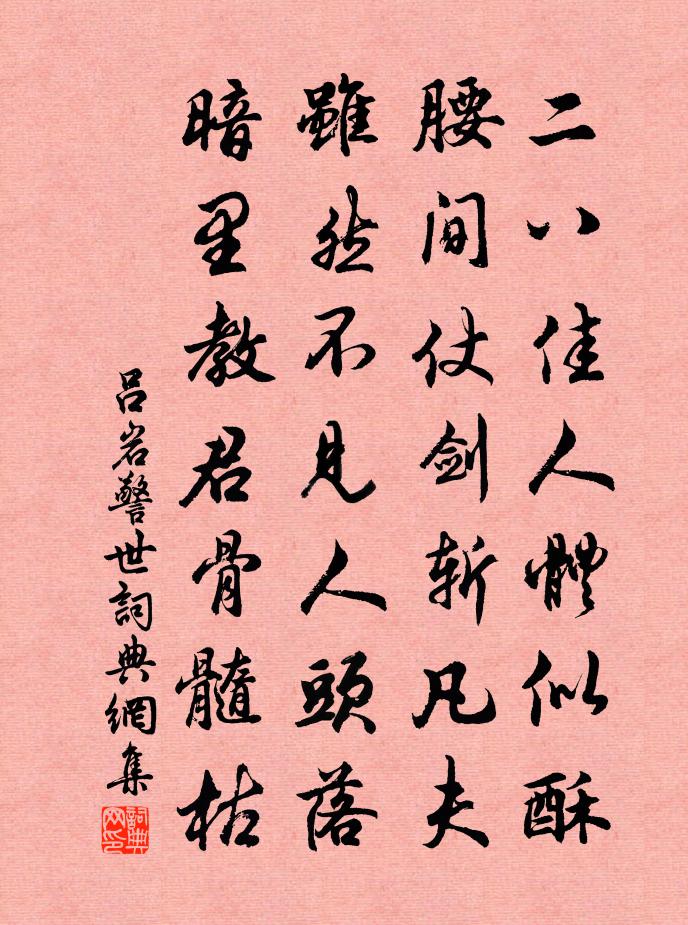 二八佳人體似酥
腰间仗剑斩凡夫
雖然不見人頭落
暗里教君骨髓枯
吕岩警世詞典網集
詞典网印